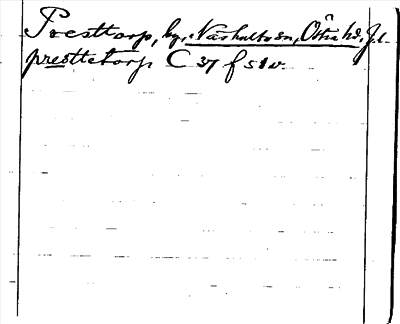 Presttorp, by, Näshults sn, Östra hd, J.l.
prestetorp C 37 f 51v.